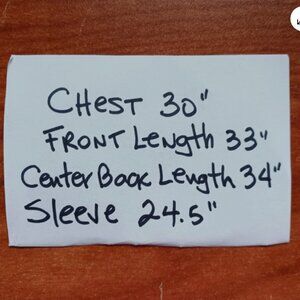 CHest 30"
FRONT Length 33"
Center Back Length 34"
Sleeve 24.5"